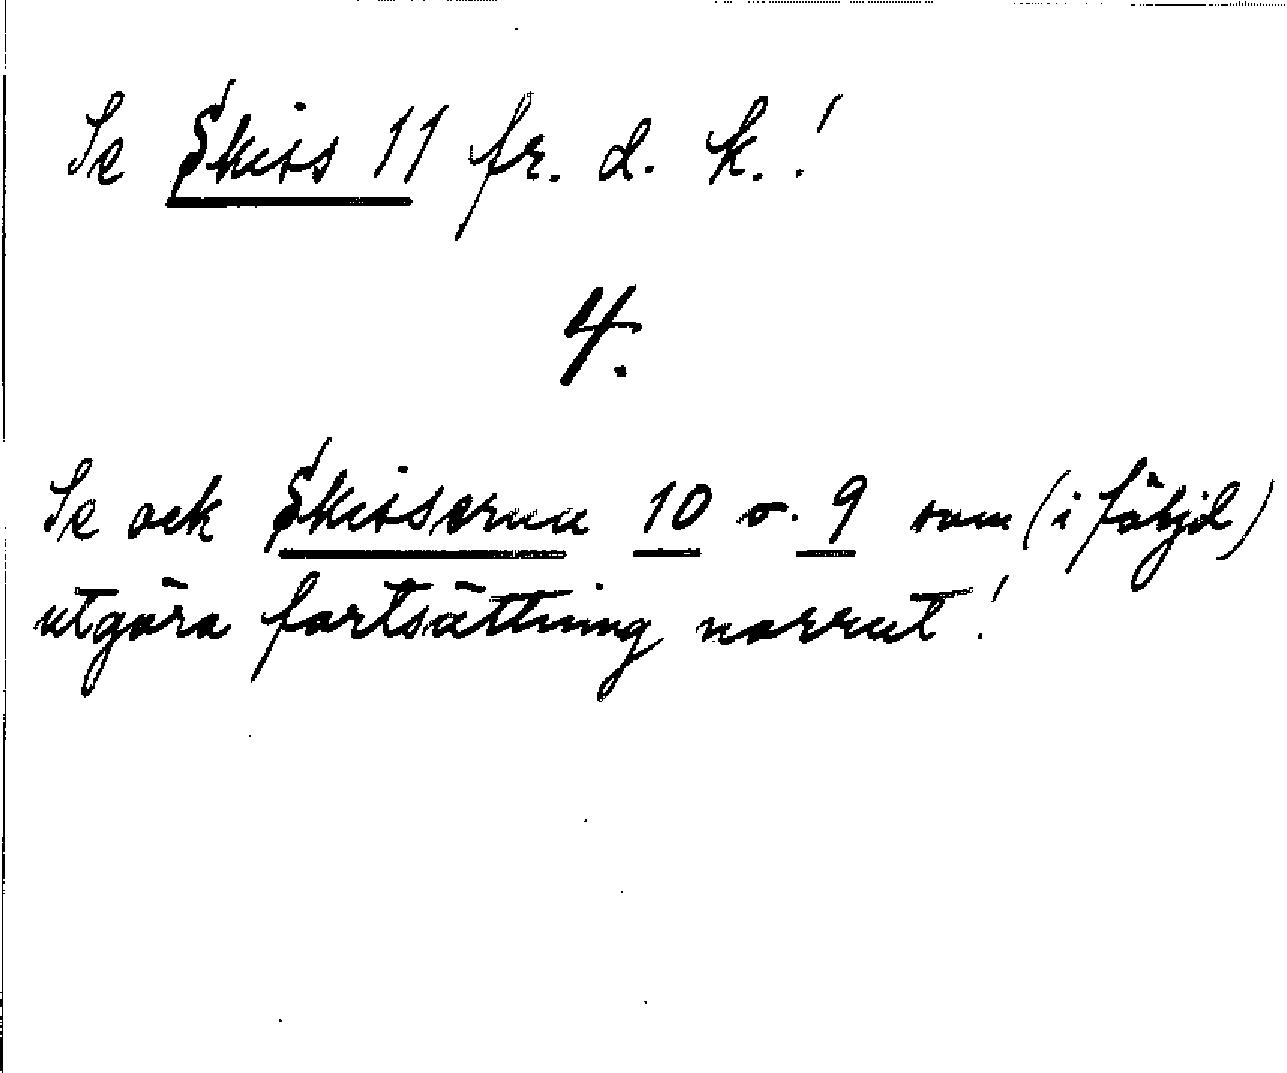 Se Skiss 11 fr. d. k.!
4.
Se ock Skisserna 10 o. 9 som (i följd)
utgöra fortsättning norrut!